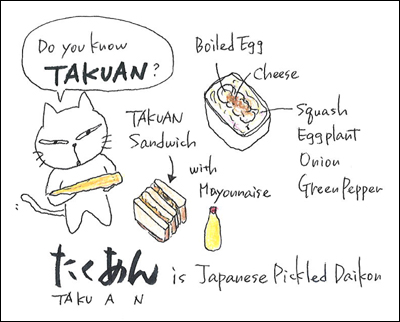 Do you know
TAKUAN?
Boiled Egg
Cheese
Squash
Eggplant
Onion
Green Pepper
TAKUAN
Sandwich
with
Mayonnaise
たくあん is Japanese Pickled Daikon
TAKUAN